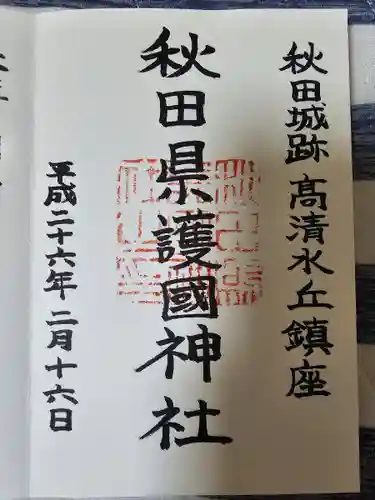 秋田城跡 髙清水丘鎮座
秋田県護國神社
平成二十六年 二月十六日